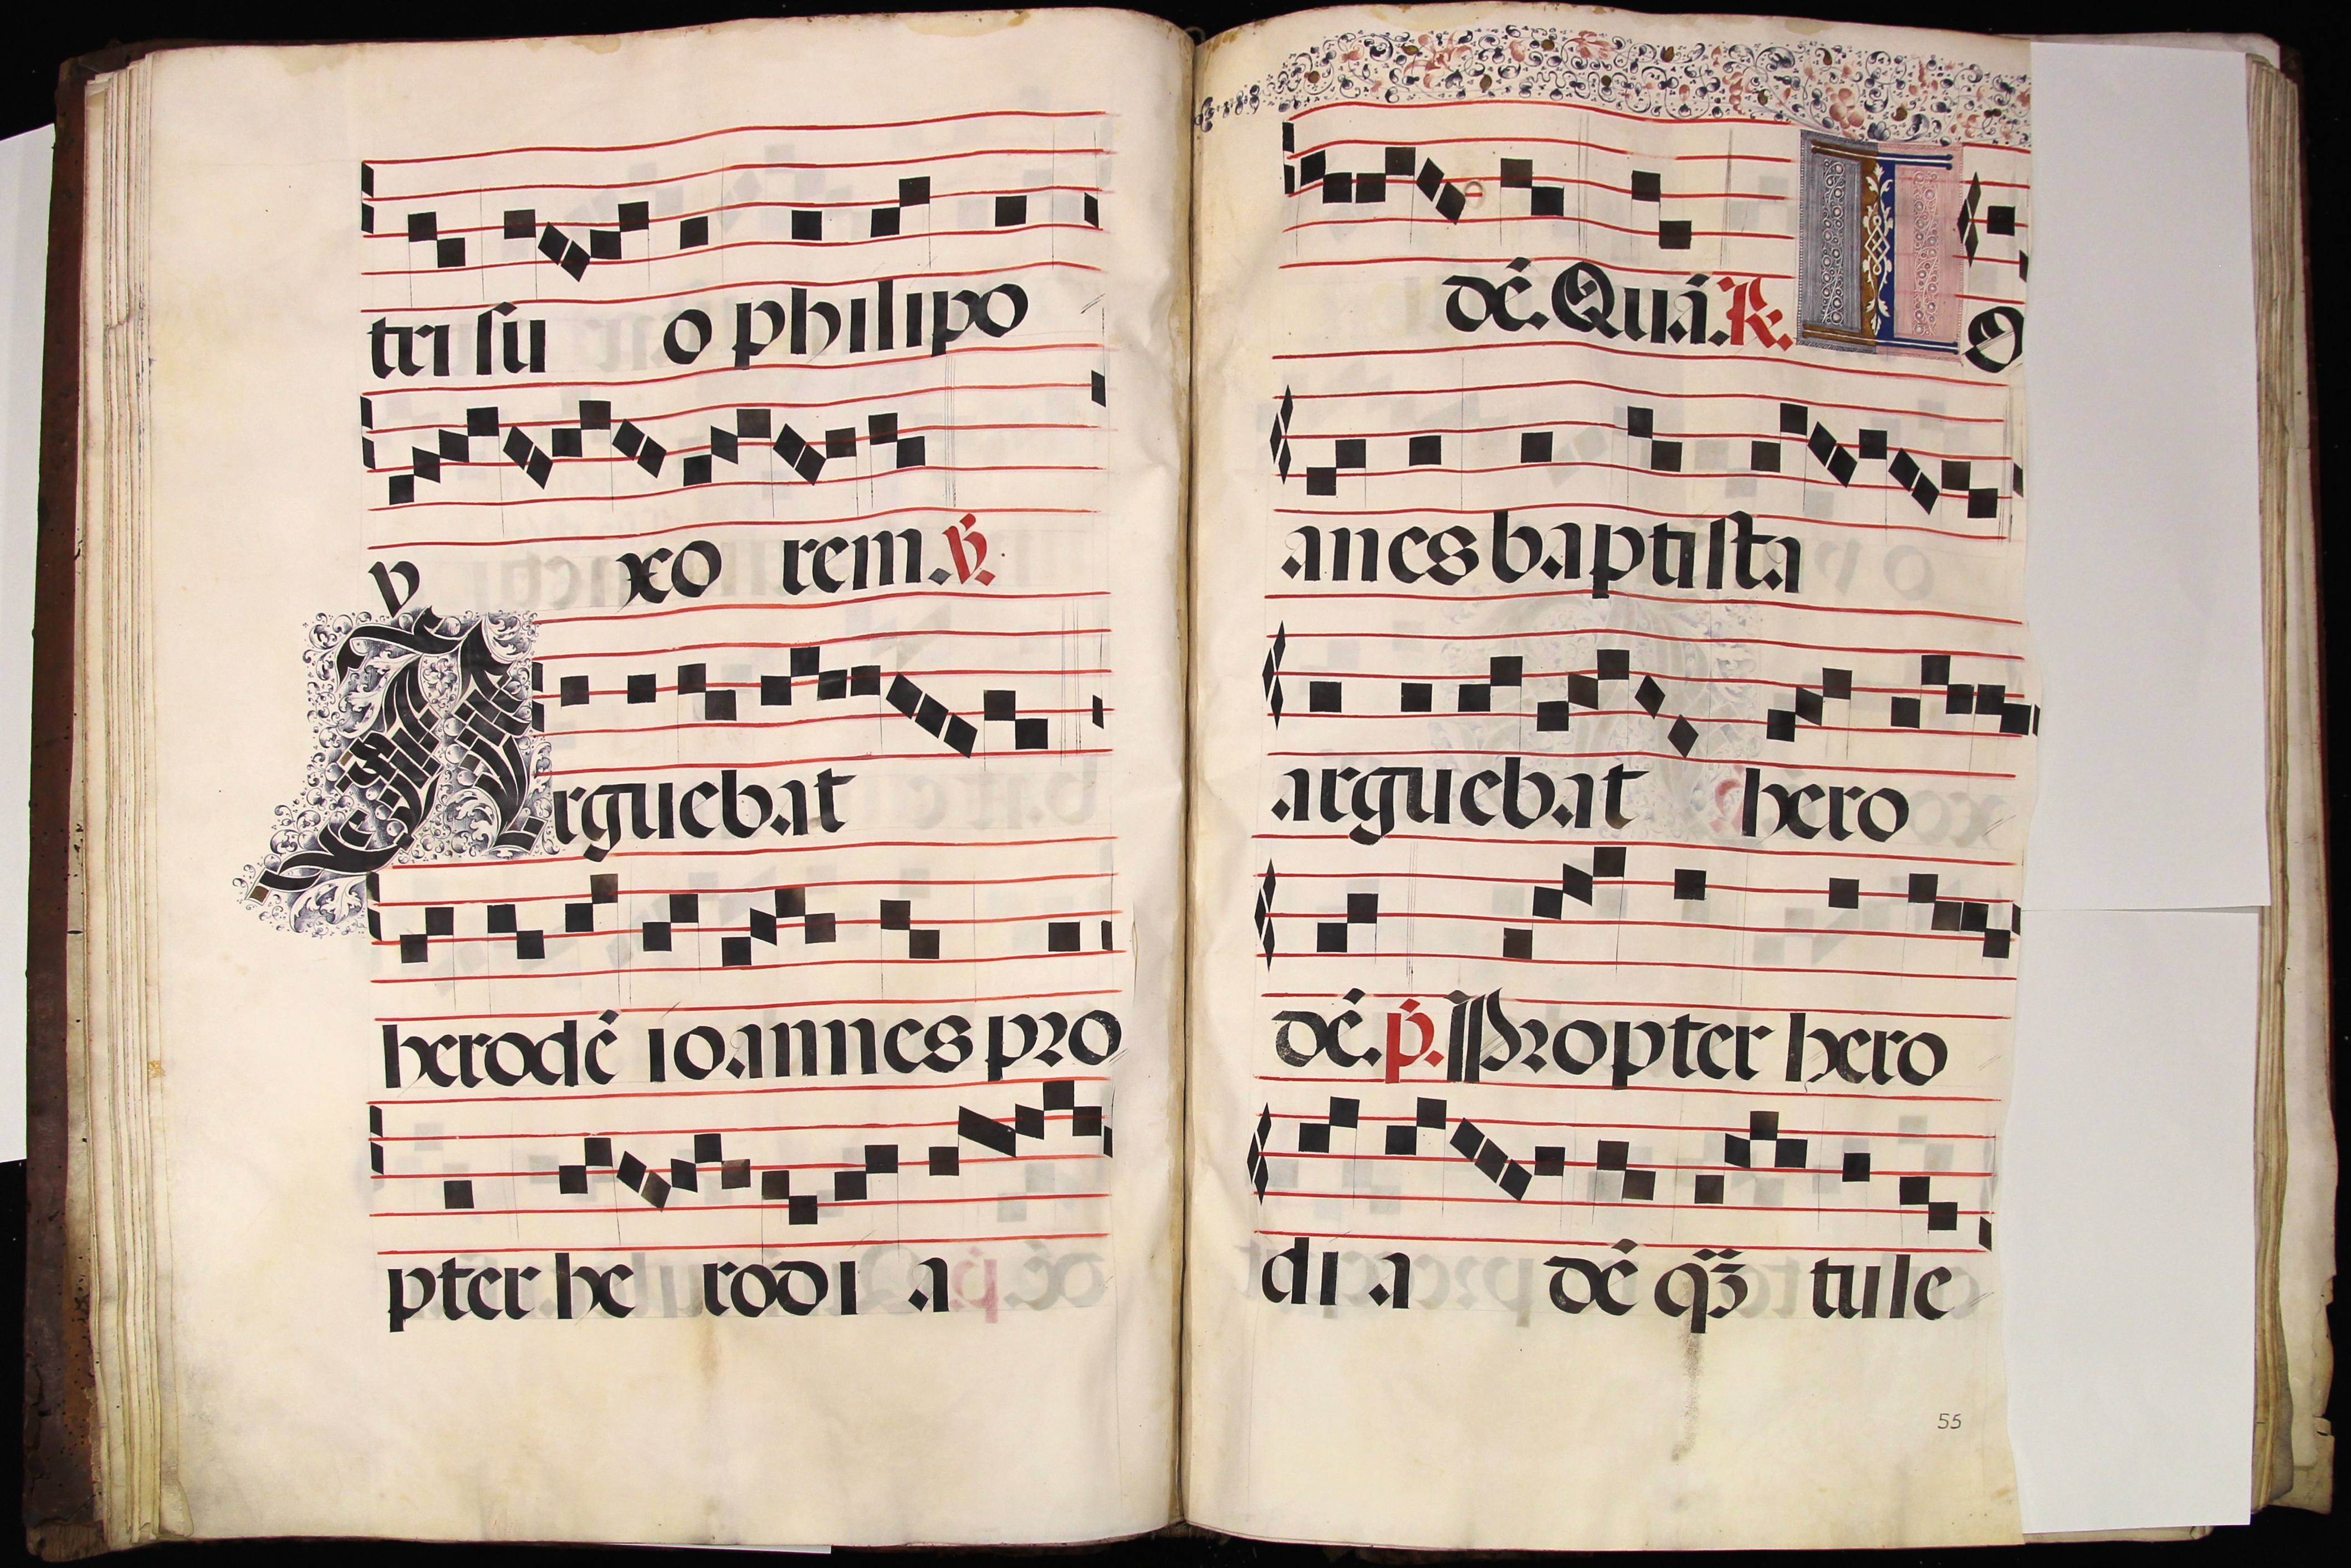 tri su o philipo
v xo rem. ℣.
Arguebat
herodē ioannnes pro
pter he rodi a
dē. Quā. ℟. I O
anes baptista
arguebat hero
dē. p̄. Propter hero
di a dē q̄ȝ tule
55